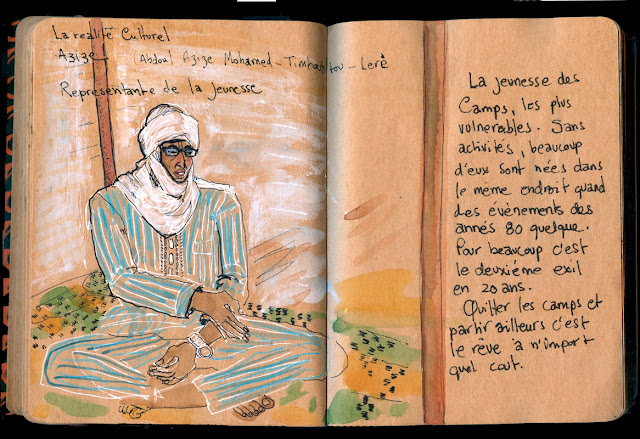 La realité Culturel
Azize - (Abdoul Azize Mohamed - Timbouctou - Lerè
Représentante de la jeunesse
La jeunesse des
Camps, les plus
vulnerables. Sans
activités, beaucoup
d'eux sont nées dans
le même endroit quand
des évènements des
annés 80 quelque.
Pour beaucoup c'est
le deuxième exil
en 20 ans.
Quitter les camps et
partir ailleurs c'est
le rêve à n'import
quel cout.